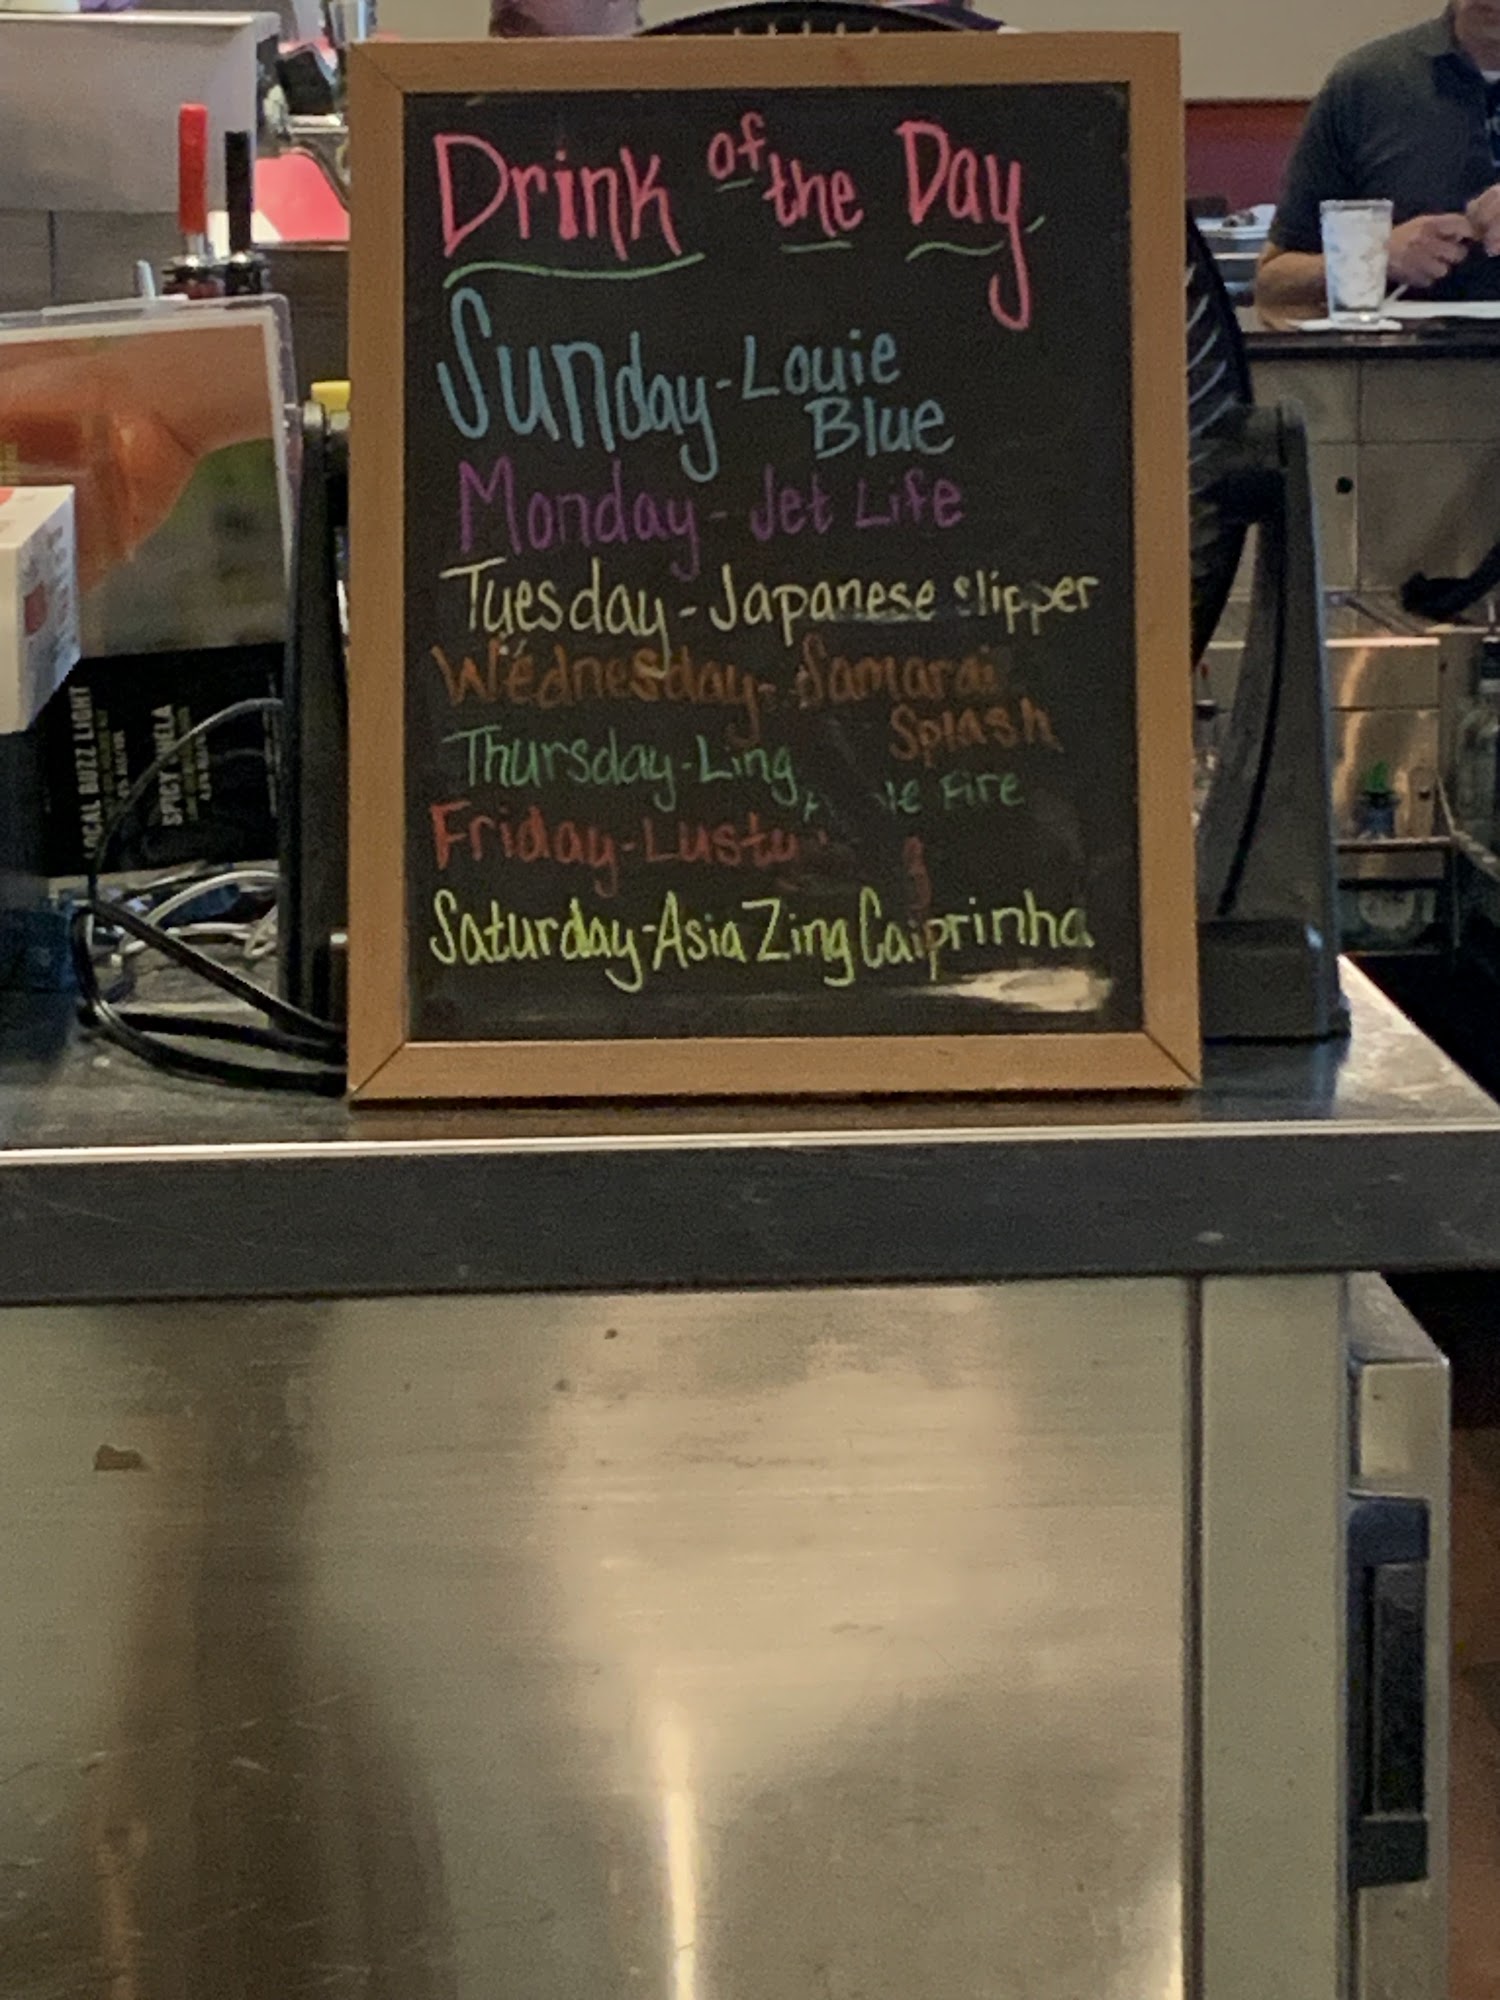 Drink of the Day
Sunday - Louie
Blue
Monday - Jet Life
Tuesday - Japanese Slipper
Wednesday - Samarai
Splash
Thursday - Ling
Fire
Friday - Lusty
Saturday - Asia Zing Caiprinha
LOCAL BUZZ LIGHT
SPICY